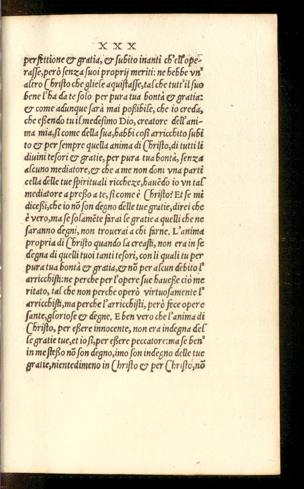 XXX
perfettione & gratia, & subito inanti ch'ell'ope-
rasse, però senza suoi proprij meriti: ne hebbe vn'
altro Christo che gliele aquistasse, tal che tutt'il suo
bene l'ha da te solo per pura tua bontà & gratia:
& come adunque sarà mai possibile, che io creda,
che essendo tu il medesimo Dio, creatore dell'ani-
ma mia, sì come della sua, habbi così arricchito subi
to & per sempre quella anima di Christo, di tutti li
diuini tesori & gratie, per pura tua bontà, senza
alcuno mediatore, & che a me non doni vna parti
cella delle tue spirituali riccheze, hauẽdo io vn tal
mediatore a presso a te, sì come è Christo? Et se mi
dicessi, che io nõ son degno delle tue gratie, direi che
è vero, ma se solamẽte farai le gratie a quelli che ne
saranno degni, non trouerai a chi farne. L'anima
propria di Christo quando la creasti, non era in se
degna di quelli tuoi tanti tesori, con li quali tu per
pura tua bontà & gratia, & nõ per alcun debito l'
arricchisti: ne perche per l'opere sue hauesse ciò me
ritato, tal che non perche operò virtuosamente l'
arricchisti, ma perche l'arricchisti, però fece opere
sante, gloriose & degne. E ben vero che l'anima di
Christo, per essere innocente, non era indegna del
le gratie tue, et io sì, per essere peccatore: ma se ben'
in me stesso nõ son degno, imo son indegno delle tue
gratie, nientedimeno in Christo & per Christo, nõ